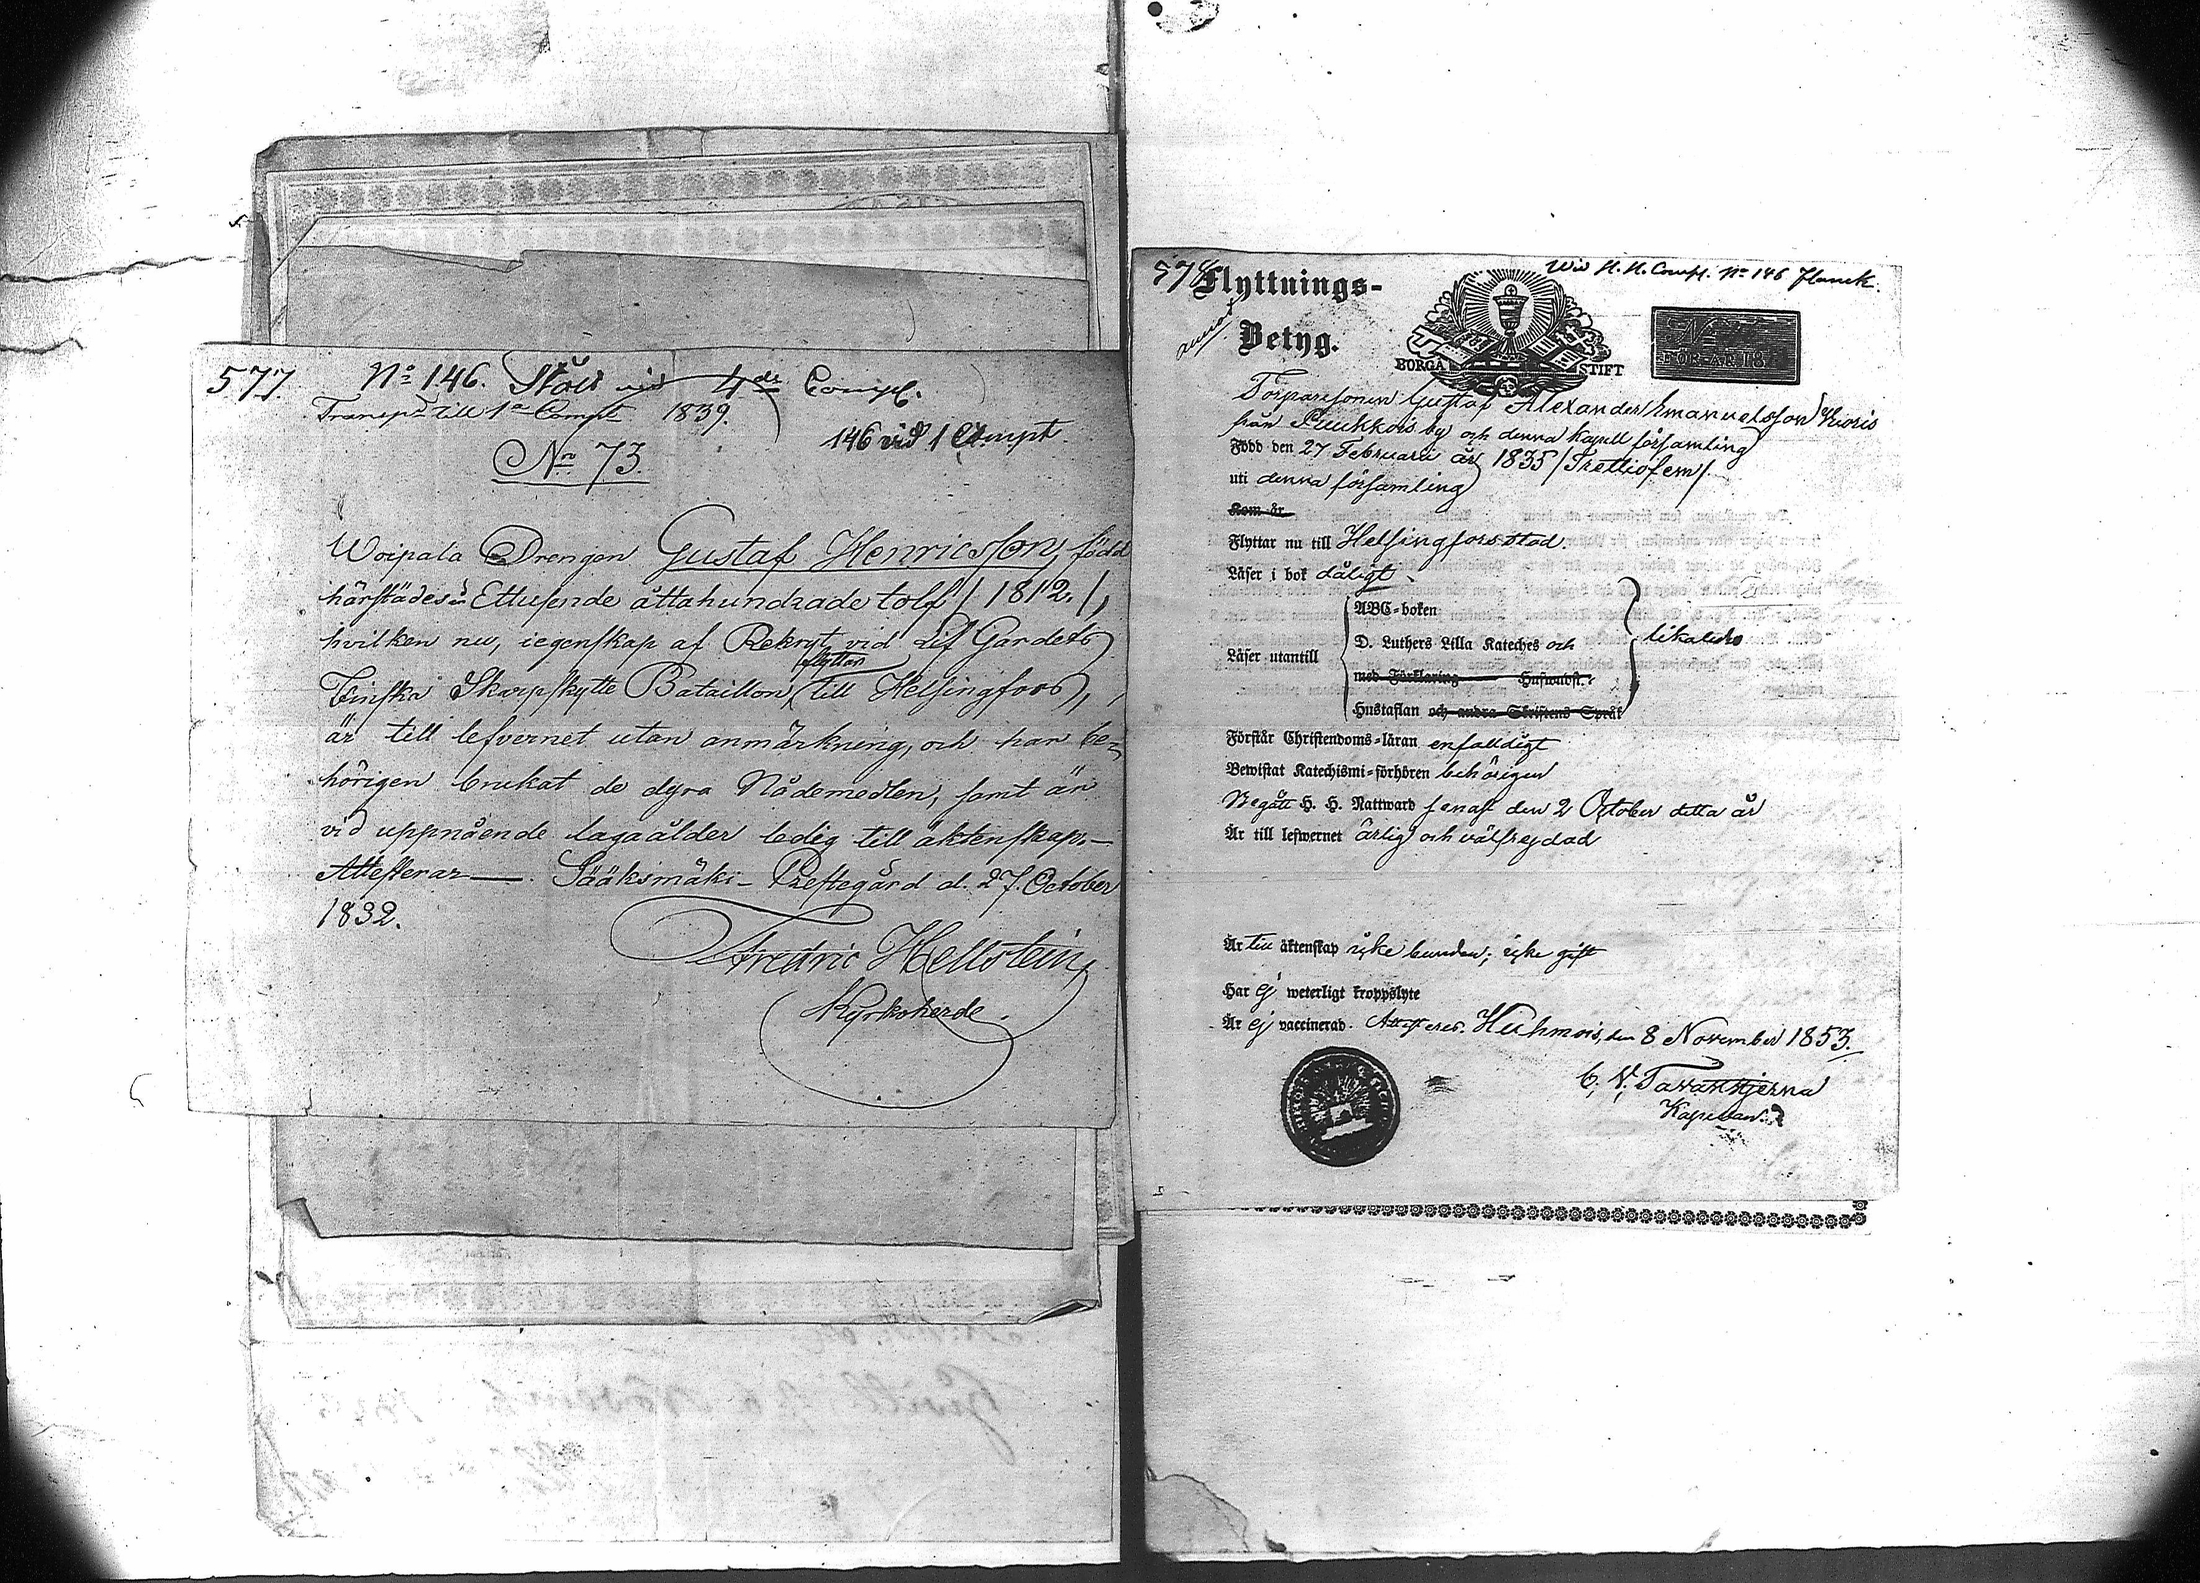 577.
No 146. Stöls vid 4de Comp.
Transpt till 1a Compt 1839.
146 vid 1 Compt.
No 73.
Woipala Drengen Gustaf Henricsson, född
härstädes år Ettusende åttahundrade tolf / 1812. /,
hvilken nu, i egenskap af Rekryt vid Lif Gardets
Finska Skarpskytte Bataillon, flyttar till Helsingfors,
är till lefvernet utan anmärkning, och har be-
hörigen brukat de dyra Nådemedlen, samt är
vid uppnående lagaålder ledig till äktenskap. —
Attesterar — . Sääksmäki Prestegård d. 27. October
1832.
Fredric Hellstein,
Kyrkoherde.
578.
Wid H. H. Comp. No 146 Flanck.
Flyttnings-
Betyg.
annot
BORGÅ STIFT
FÖR ÅR 18
Torparesonen Gustaf Alexander Emanuelsson
från Puukkois by och denna kapell församling
Född den 27 Februarii år 1835 / Trettiofem /.
uti denna församling
Kom år
Flyttar nu till Helsingfors stad.
Läser i bok dåligt
Läser utantill
ABC-boken
D. Luthers Lilla Kateches och
med Förklaring Huswudst.:
Hustaflan och andra Skriftens Språk
likaledes
Förstår Christendoms-läran enfaldigt
Bewistat Katechismi-förhören behörigen
Begått H. H. Nattward senast den 2 October detta år
Är till lefwernet ärlig och välfrejdad
Är till äktenskap icke bunden; icke gift
Har ej weterligt kroppslyte
Är ej vaccinerad. Attesteras. Kuhmois, den 8 November 1853.
C. V. Tavaststjerna
Kapellan.